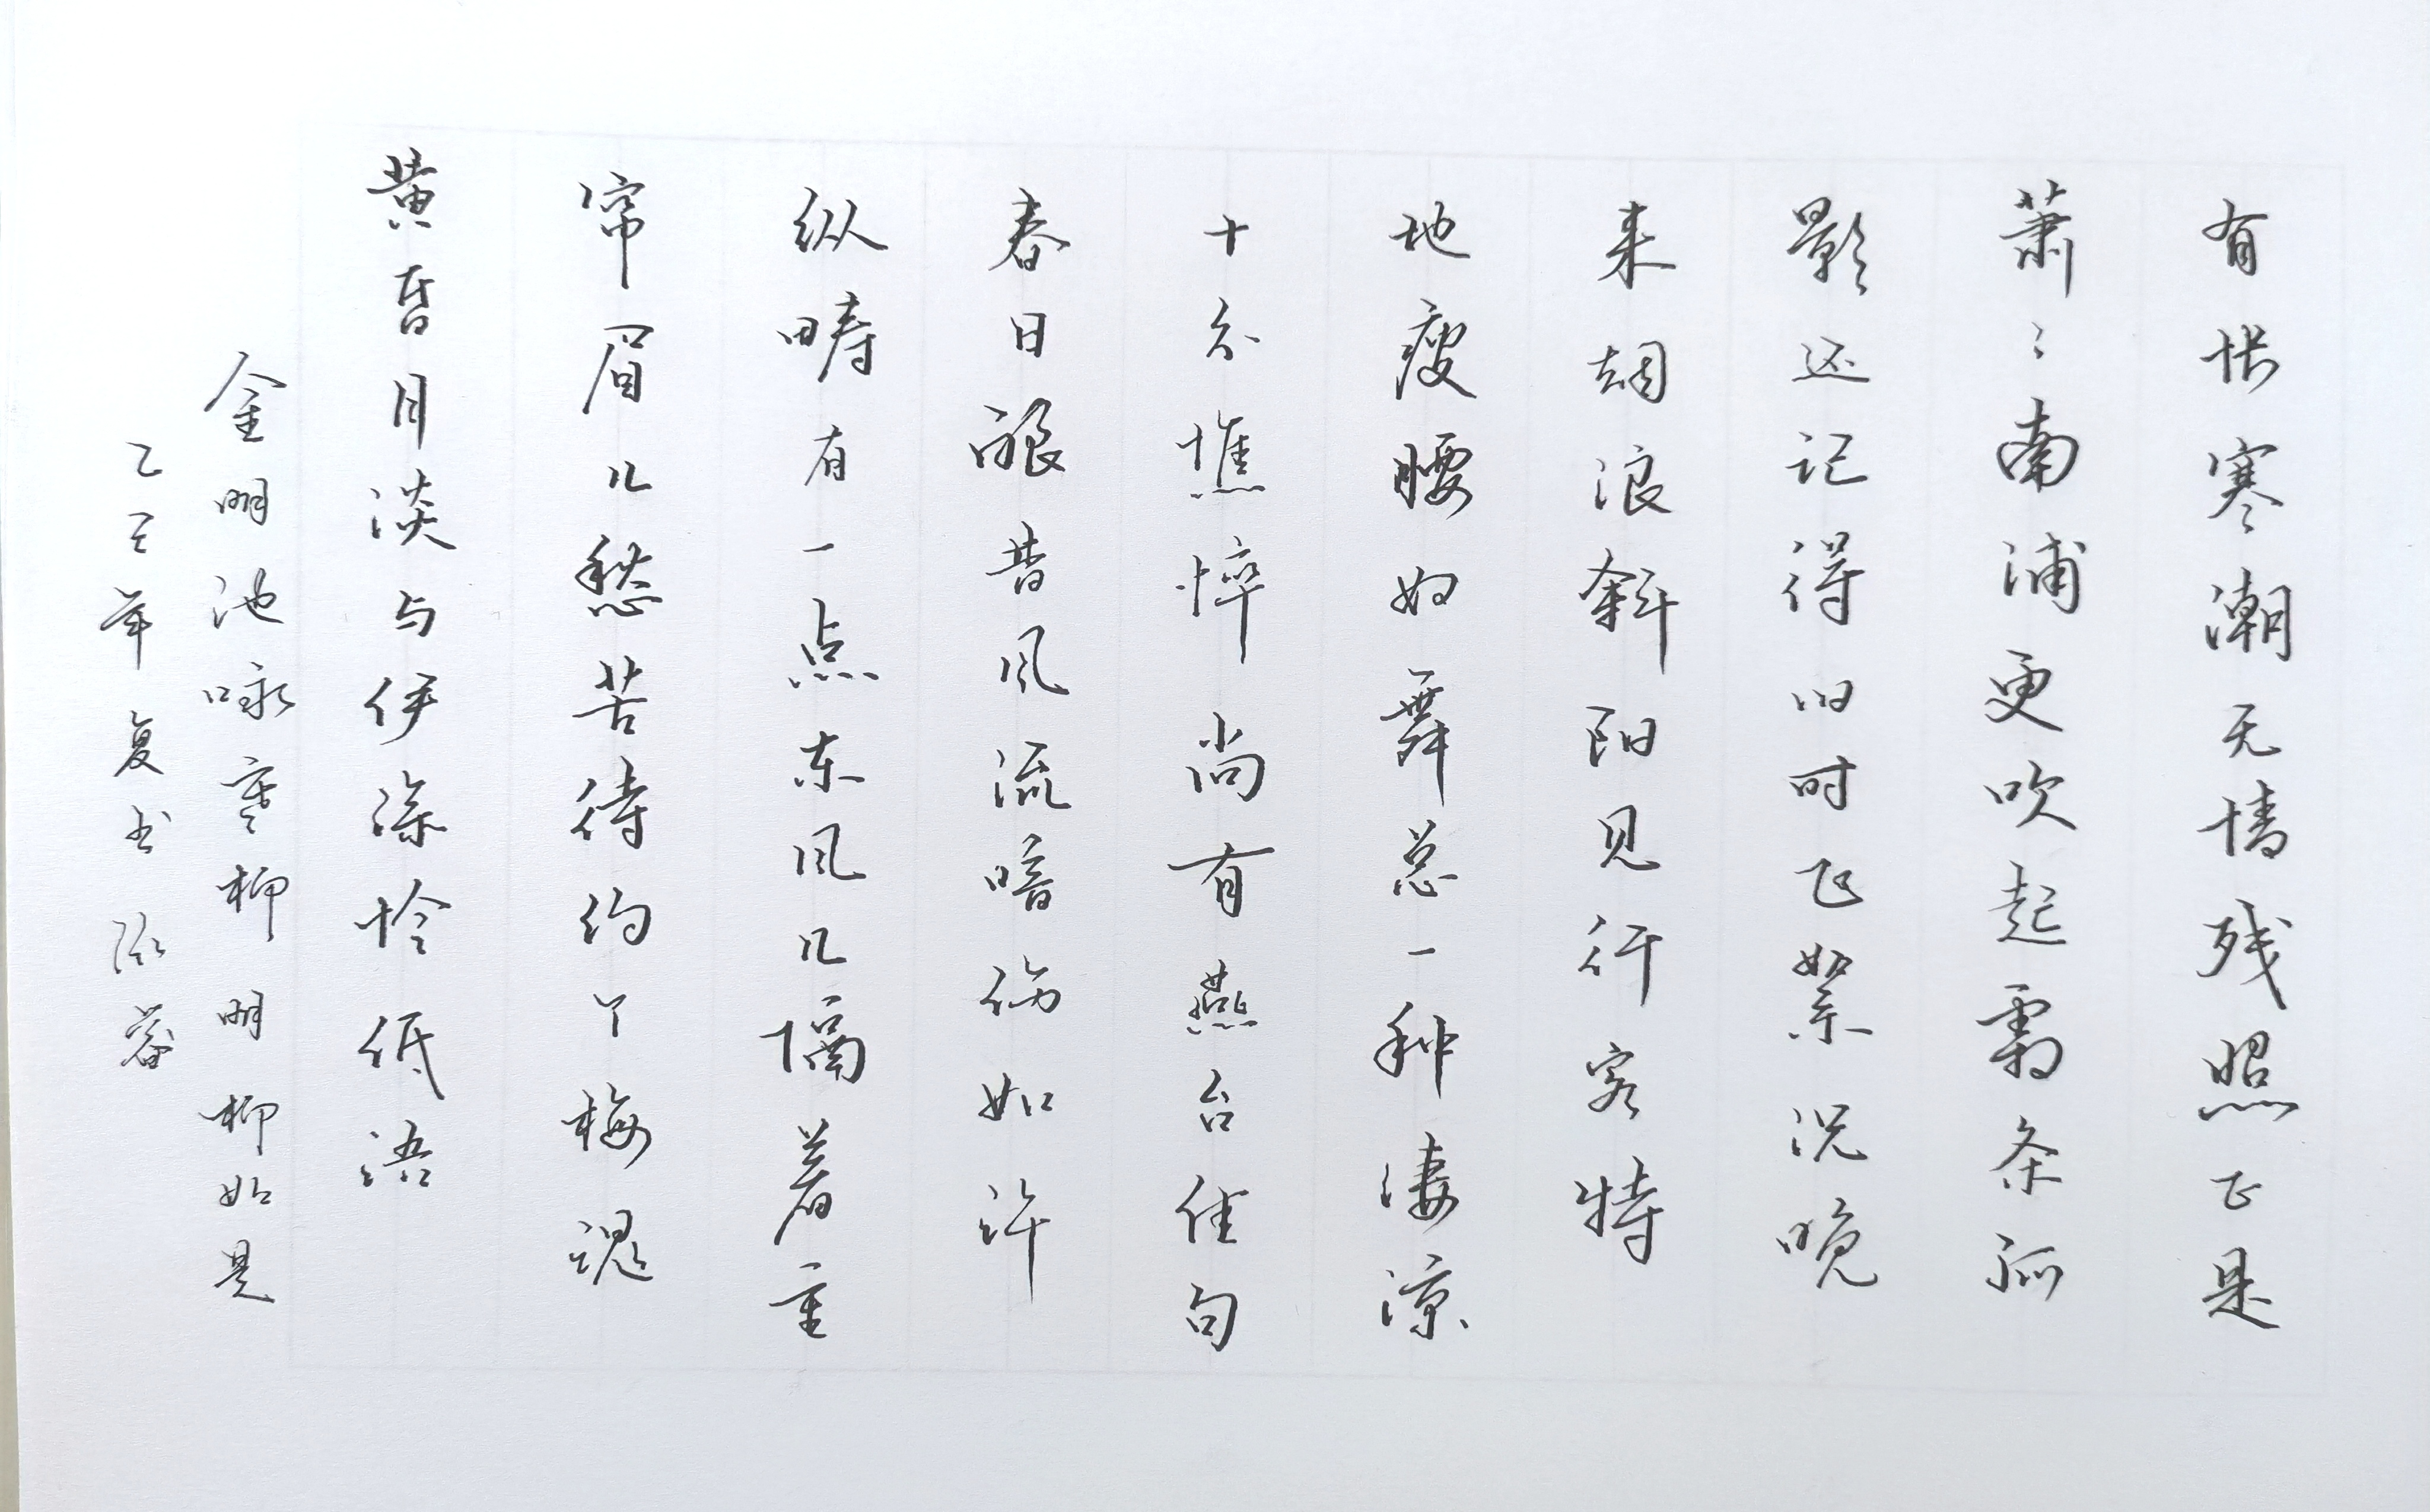 有怅寒潮无情残照正是
萧〻南浦更吹起霜条孤
影还记得旧时飞絮况晚
来烟浪斜阳见行客特
地瘦腰如舞总一种凄凉
十分憔悴尚有燕台佳句
春日酿昔风流暗伤如许
纵畴有一点东风几隔着重
帘眉儿愁苦待约个梅魂
黄昏月淡与伊深怜低语
金明池咏寒柳明柳如是
乙巳年夏书